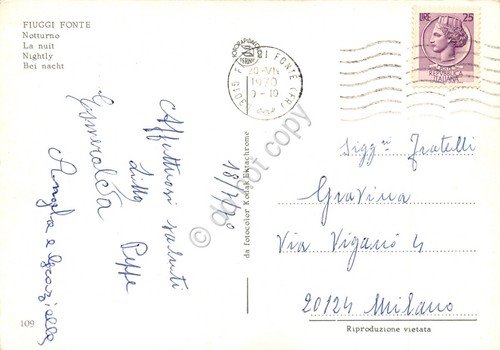 FIUGGI FONTE
Notturno
La nuit
Nightly
Bei nacht
03015 FIUGGI FONTE (FR)
1970
9-10
LIRE 25
REPUBBLICA
ITALIANA
18/7/70
Affettuosi saluti
Lilla Peppe
Esmeralda
Angela e Graziella
da fotocolor Kodak Ektachrome
do not copy
Sigg.ri Fratelli
Gravina
Via Viganò 4
20124 Milano
109
Riproduzione vietata